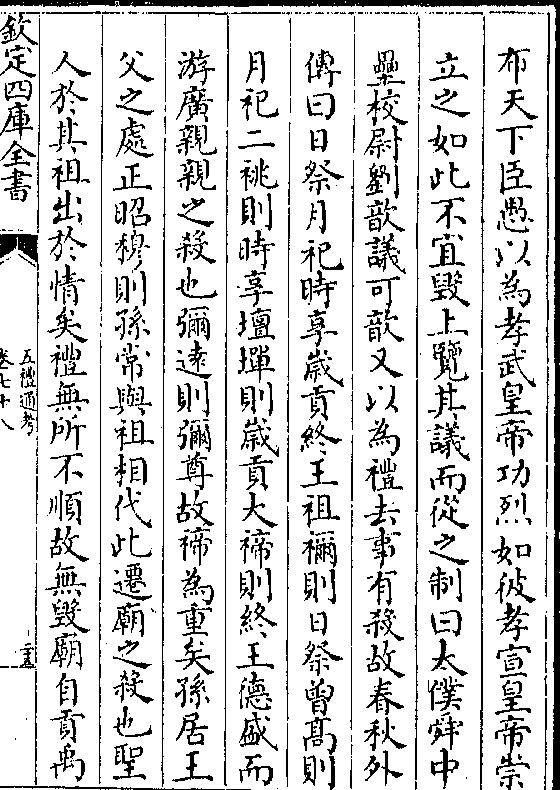 布天下臣愚以為孝武皇帝功烈如彼孝宣皇帝崇
立之如此不宜毀上覽其議而從之制曰太僕舜中
壘校尉劉歆議可歆又以為禮去事有殺故春秋外
傳曰日祭月祀時享歲貢終王祖禰則日祭曾高則
月祀二祧則時享壇墠則歲貢大禘則終王德盛而
游廣親親之殺也彌遠則彌尊故禘為重矣孫居王
父之處正昭穆則孫常與祖相代此遷廟之殺也聖
人於其祖出於情矣禮無所不順故無毀廟自貢禹
欽定四庫全書
五禮通考
卷七十八